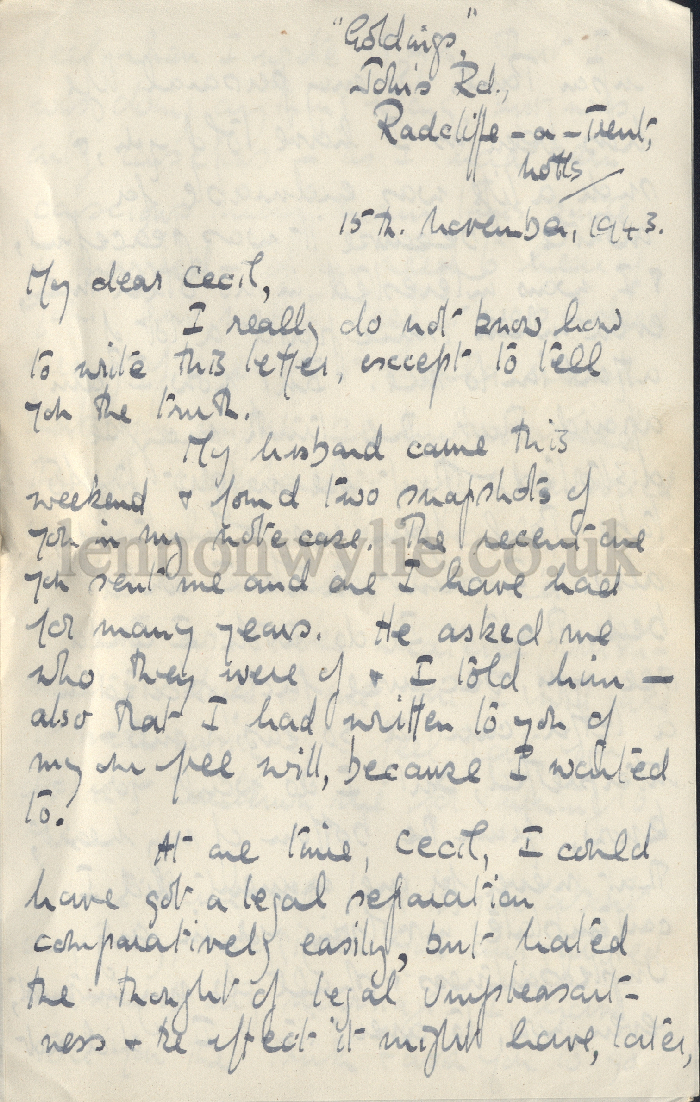 "Goldings,"
John's Rd.,
Radcliffe-a-Trent,
Notts
15th. November, 1943.
My dear Cecil,
I really do not know how
to write this letter, except to tell
you the truth.
My husband came this
weekend & found two snapshots of
you in my note case. The recent one
lennonwylie.co.uk
you sent me and one I have had
for many years. He asked me
who they were of & I told him —
also that I had written to you of
my own free will, because I wanted
to.
At one time, Cecil, I could
have got a legal separation
comparatively easily, but hated
the thought of legal unpleasant-
ness & the effect it might have, later,